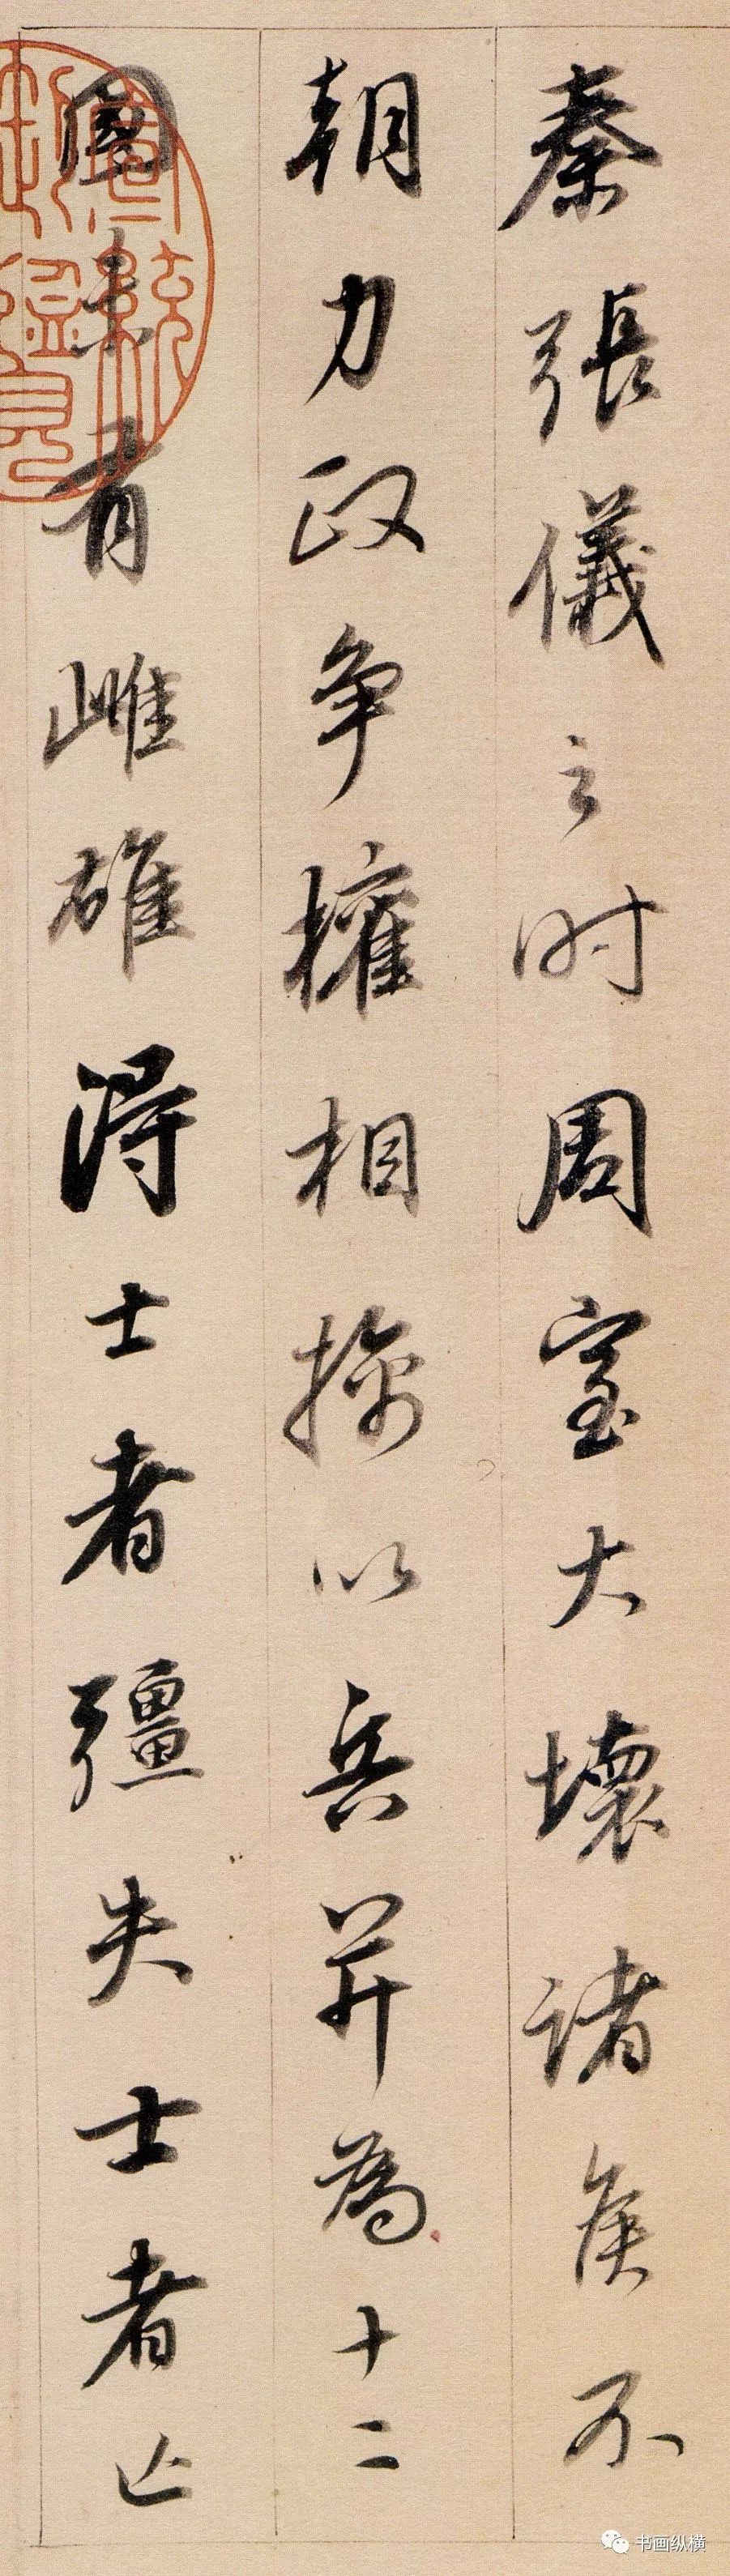 秦張儀之时周室大壞諸侯不
朝力政争權相擒以兵并為十二
國未有雌雄得士者彊失士者亡
宣統御覽
书画纵横